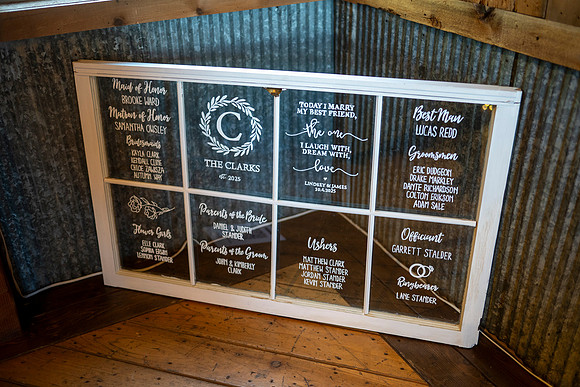 Maid of Honor
BROOKE WARD
Matron of Honor
SAMANTHA OWSLEY
Bridesmaids
KAYLA CLARK
KENDALL CLINE
CHLOE ZAWISZA
AUTUMN WAY
C
THE CLARKS
EST. 2025
TODAY I MARRY
MY BEST FRIEND,
the one
I LAUGH WITH,
DREAM WITH,
love
LINDSEY & JAMES
Best Man
LUCAS REDD
Groomsmen
ERIC DUDGEON
DRAKE MARKLEY
DANTE RICHARDSON
COLTON ERIKSON
ADAM SALE
Flower Girls
ELLE CLARK
SOPHIA ERWIN
LENNON STANDER
Parents of the Bride
DANIEL & JUDITH
STANDER
Parents of the Groom
JOHN & KIMBERLY
CLARK
Ushers
MATTHEW CLARK
MATTHEW STANDER
JORDAN STANDER
KEVIN STANDER
Officiant
GARRETT STALDER
Ringbearer
LANE STANDER